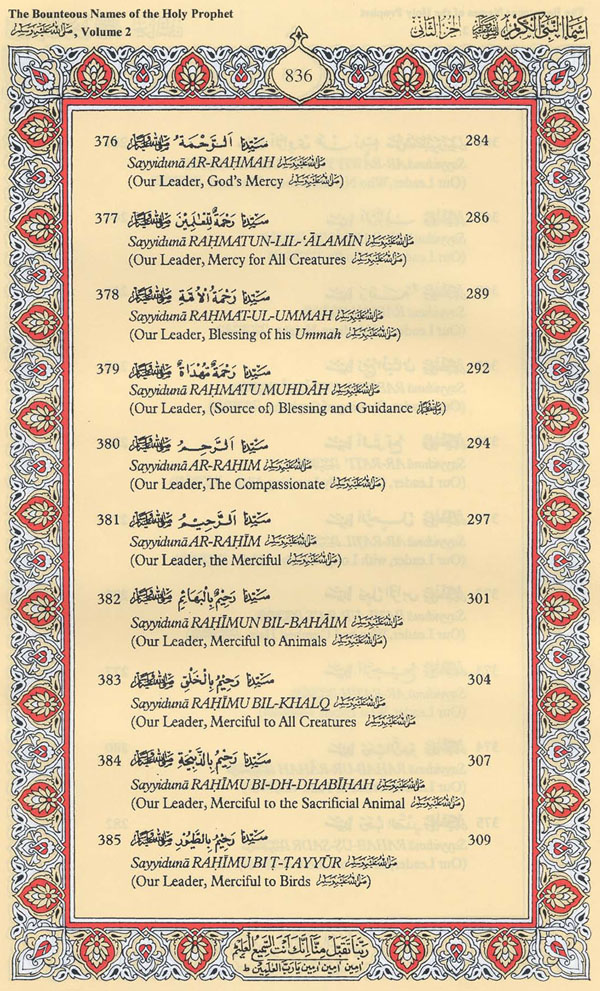 The Bounteous Names of the Holy Prophet
ﷺ, Volume 2
اسماء النبی الکریم ﷺ الجزء الثانی
836
376 سَيِّدُنَا اَلرَّحْمَةُ ﷺ 284
Sayyidunā AR-RAḤMAH ﷺ
(Our Leader, God's Mercy ﷺ)
377 سَيِّدُنَا رَحْمَةٌ لِّلْعٰلَمِيْنَ ﷺ 286
Sayyidunā RAḤMATUN-LIL-‘ĀLAMĪN ﷺ
(Our Leader, Mercy for All Creatures ﷺ)
378 سَيِّدُنَا رَحْمَةُ الْاُمَّةِ ﷺ 289
Sayyidunā RAḤMAT-UL-UMMAH ﷺ
(Our Leader, Blessing of his Ummah ﷺ)
379 سَيِّدُنَا رَحْمَةٌ مُهْدَاةٌ ﷺ 292
Sayyidunā RAḤMATU MUHDĀH ﷺ
(Our Leader, (Source of) Blessing and Guidance ﷺ)
380 سَيِّدُنَا اَلرَّحِمُ ﷺ 294
Sayyidunā AR-RAḤIM ﷺ
(Our Leader, The Compassionate ﷺ)
381 سَيِّدُنَا اَلرَّحِيْمُ ﷺ 297
Sayyidunā AR-RAḤĪM ﷺ
(Our Leader, the Merciful ﷺ)
382 سَيِّدُنَا رَحِيْمٌ بِالْبَهَائِمِ ﷺ 301
Sayyidunā RAḤĪMUN BIL-BAHĀIM ﷺ
(Our Leader, Merciful to Animals ﷺ)
383 سَيِّدُنَا رَحِيْمٌ بِالْخَلْقِ ﷺ 304
Sayyidunā RAḤĪMU BIL-KHALQ ﷺ
(Our Leader, Merciful to All Creatures ﷺ)
384 سَيِّدُنَا رَحِيْمٌ بِالذَّبِيْحَةِ ﷺ 307
Sayyidunā RAḤĪMU BI-DH-DHABĪḤAH ﷺ
(Our Leader, Merciful to the Sacrificial Animal ﷺ)
385 سَيِّدُنَا رَحِيْمٌ بِالطُّيُوْرِ ﷺ 309
Sayyidunā RAḤĪMU BI Ṭ-ṬAYYŪR ﷺ
(Our Leader, Merciful to Birds ﷺ)
رَبَّنَا تَقَبَّلْ مِنَّا اِنَّكَ اَنْتَ السَّمِيْعُ الْعَلِيْمُ
اٰمِيْن اٰمِيْن اٰمِيْن يَارَبَّ الْعٰلَمِيْنَ ط